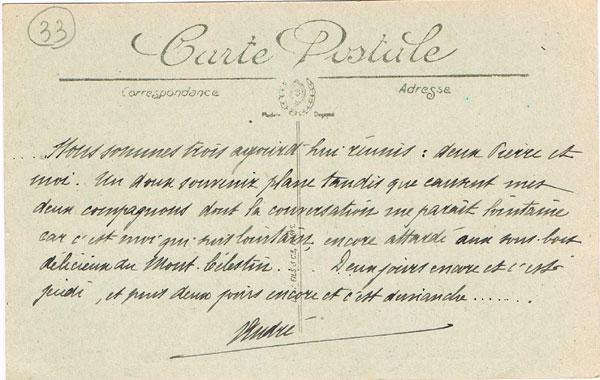 33
Carte Postale
Correspondance
Adresse
Modèle Déposé
.... Nous sommes trois aujourd'hui réunis : deux Pierre et
moi. Un doux souvenir plane tandis que causent mes
deux compagnons dont la conversation me paraît lointaine
car c'est moi qui suis lointain, encore attardé aux sous-bois
délicieux du Mont-Célestin . . . Deux jours encore et c'est
jeudi, et puis deux jours encore et c'est dimanche........
André